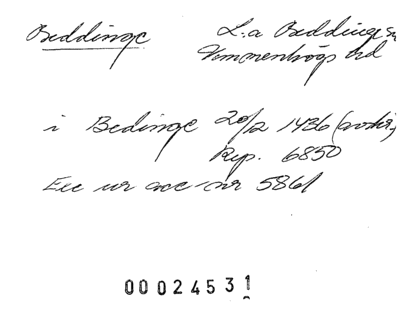 Beddinge
L:a Beddinge sn
Vemmenhögs hd
i Bedinge 20/2 1436 (avskr.)
Rep. 6850
Exc ur acc-nr 5861
00024531